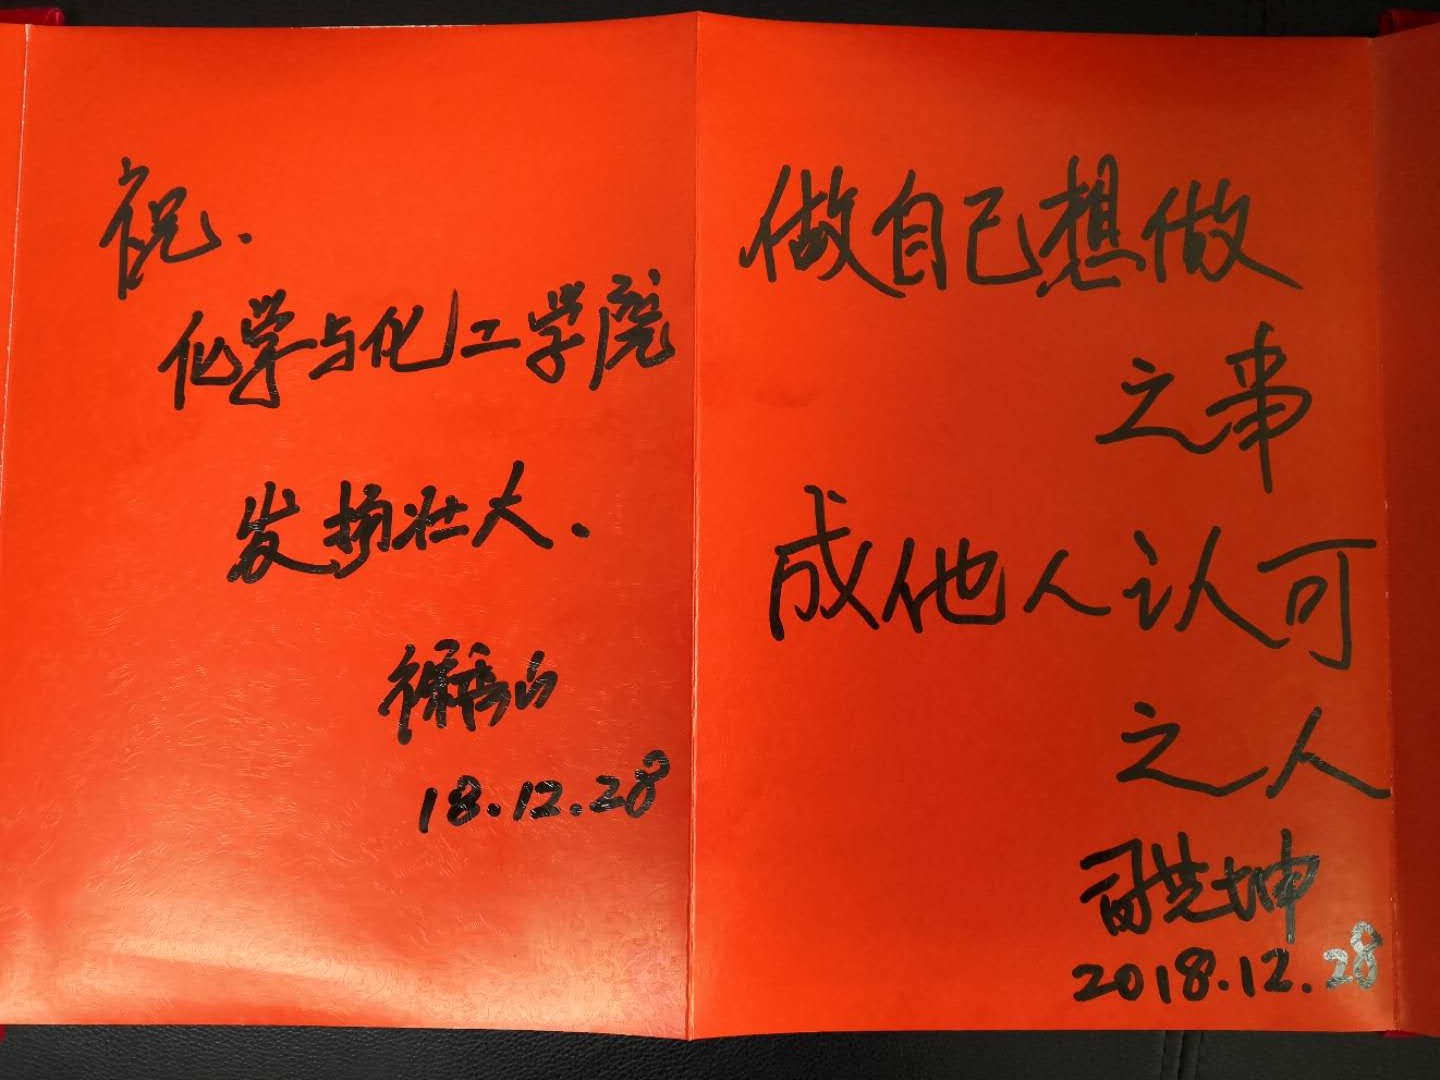 祝.
化学与化工学院
发扬壮大.
18.12.28
做自己想做
之事
成他人认可
之人
2018.12.28